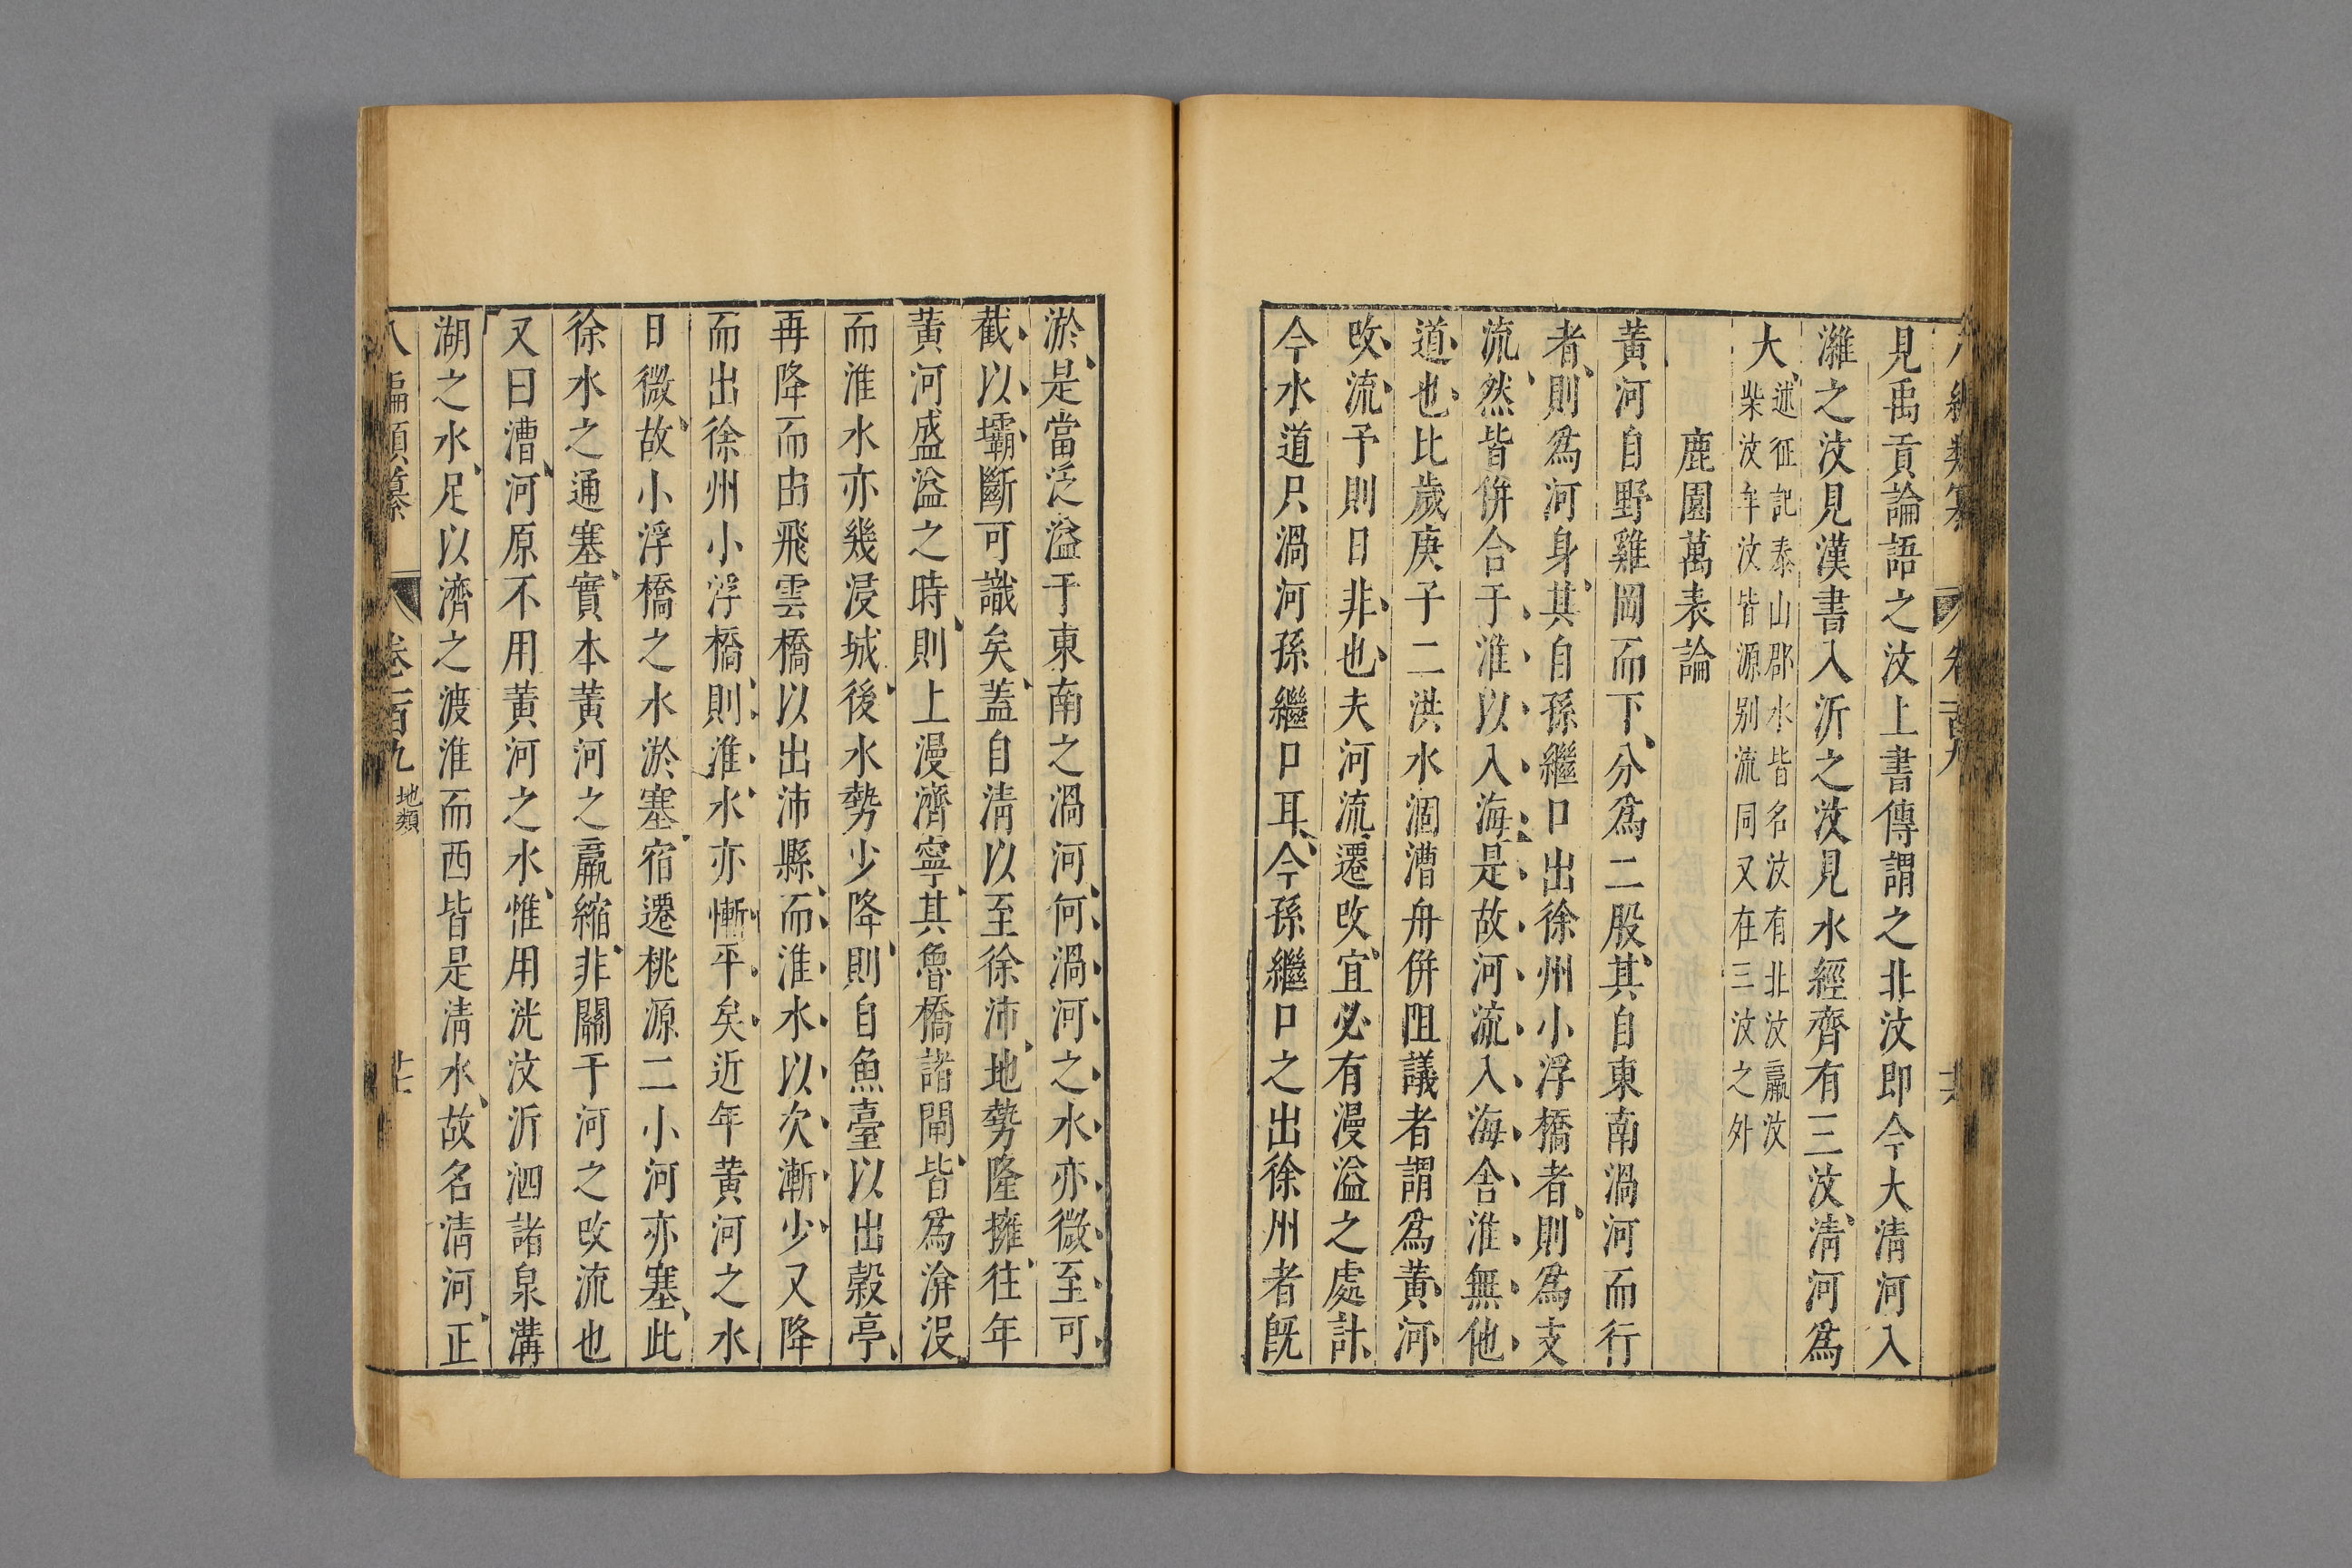 見禹貢論語之汶上書傳謂之北汶即今大淸河入
濰之汶見漢書入沂之汶見水經齊有三汶淸河爲
大述征記泰山郡水皆名汶有北汶嬴汶
柴汶牟汶皆源别流同又在三汶之外
鹿園萬表論
黄河自野雞岡而下分爲二股其自東南渦河而行
者則爲河身其自孫繼口出徐州小浮橋者則爲支
流然皆併合于淮以入海是故河流入海舍淮無他
道也比歲庚子二洪水涸漕舟併阻議者謂爲黄河
改流予則曰非也夫河流遷改宜必有漫溢之處計
今水道只渦河孫繼口耳今孫繼口之出徐州者旣
淤是當泛溢于東南之渦河何渦河之水亦微至可
截以壩斷可識矣蓋自淸以至徐沛地勢隆擁往年
黄河盛溢之時則上漫濟寧其魯橋諸閘皆爲渰沒
而淮水亦幾浸城後水勢少降則自魚臺以出榖亭
再降而由飛雲橋以出沛縣而淮水以次漸少又降
而出徐州小浮橋則淮水亦慚平矣近年黄河之水
日微故小浮橋之水淤塞宿遷桃源二小河亦塞此
徐水之通塞實本黄河之羸縮非關于河之改流也
又曰漕河原不用黄河之水惟用洸汶沂泗諸泉溝
湖之水足以濟之渡淮而西皆是淸水故名淸河正
八編類纂 卷一百九 地類 廿七